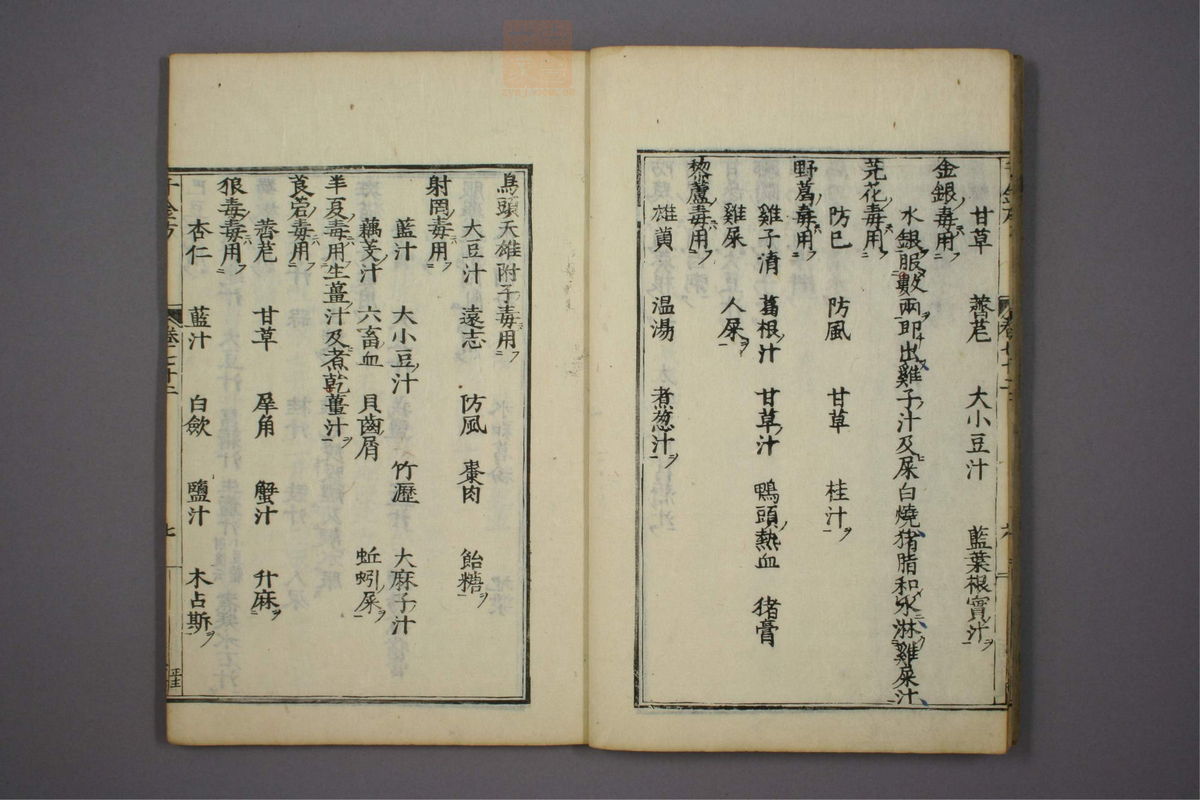 甘草 薺苨 大小豆汁 藍葉根實汁
金銀毒用
水銀服數兩即出雞子汁及屎白燒猪脂和水淋雞屎汁
芫花毒用
防已 防風 甘草 桂汁
野葛毒用
雞子清 葛根汁 甘草汁 鴨頭熱血 猪膏
雞屎 人屎
藜蘆毒用
雄黄 温湯 煮葱汁
烏頭天雄附子毒用
大豆汁 遠志 防風 棗肉 飴糖
射罔毒用
藍汁 大小豆汁 竹瀝 大麻子汁
藕芰汁 六畜血 貝齒屑 蚯蚓屎
半夏毒用生薑汁及煮乾薑汁
莨菪毒用
薺苨 甘草 犀角 蟹汁 升麻
狼毒毒用
杏仁 藍汁 白歛 鹽汁 木占斯
千金方 卷七十二 七